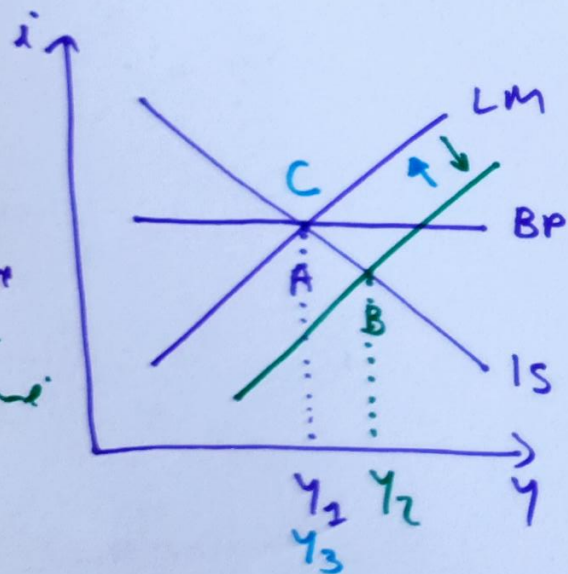 i
LM
C
BP
A
B
IS
Y1 Y2 Y
Y3